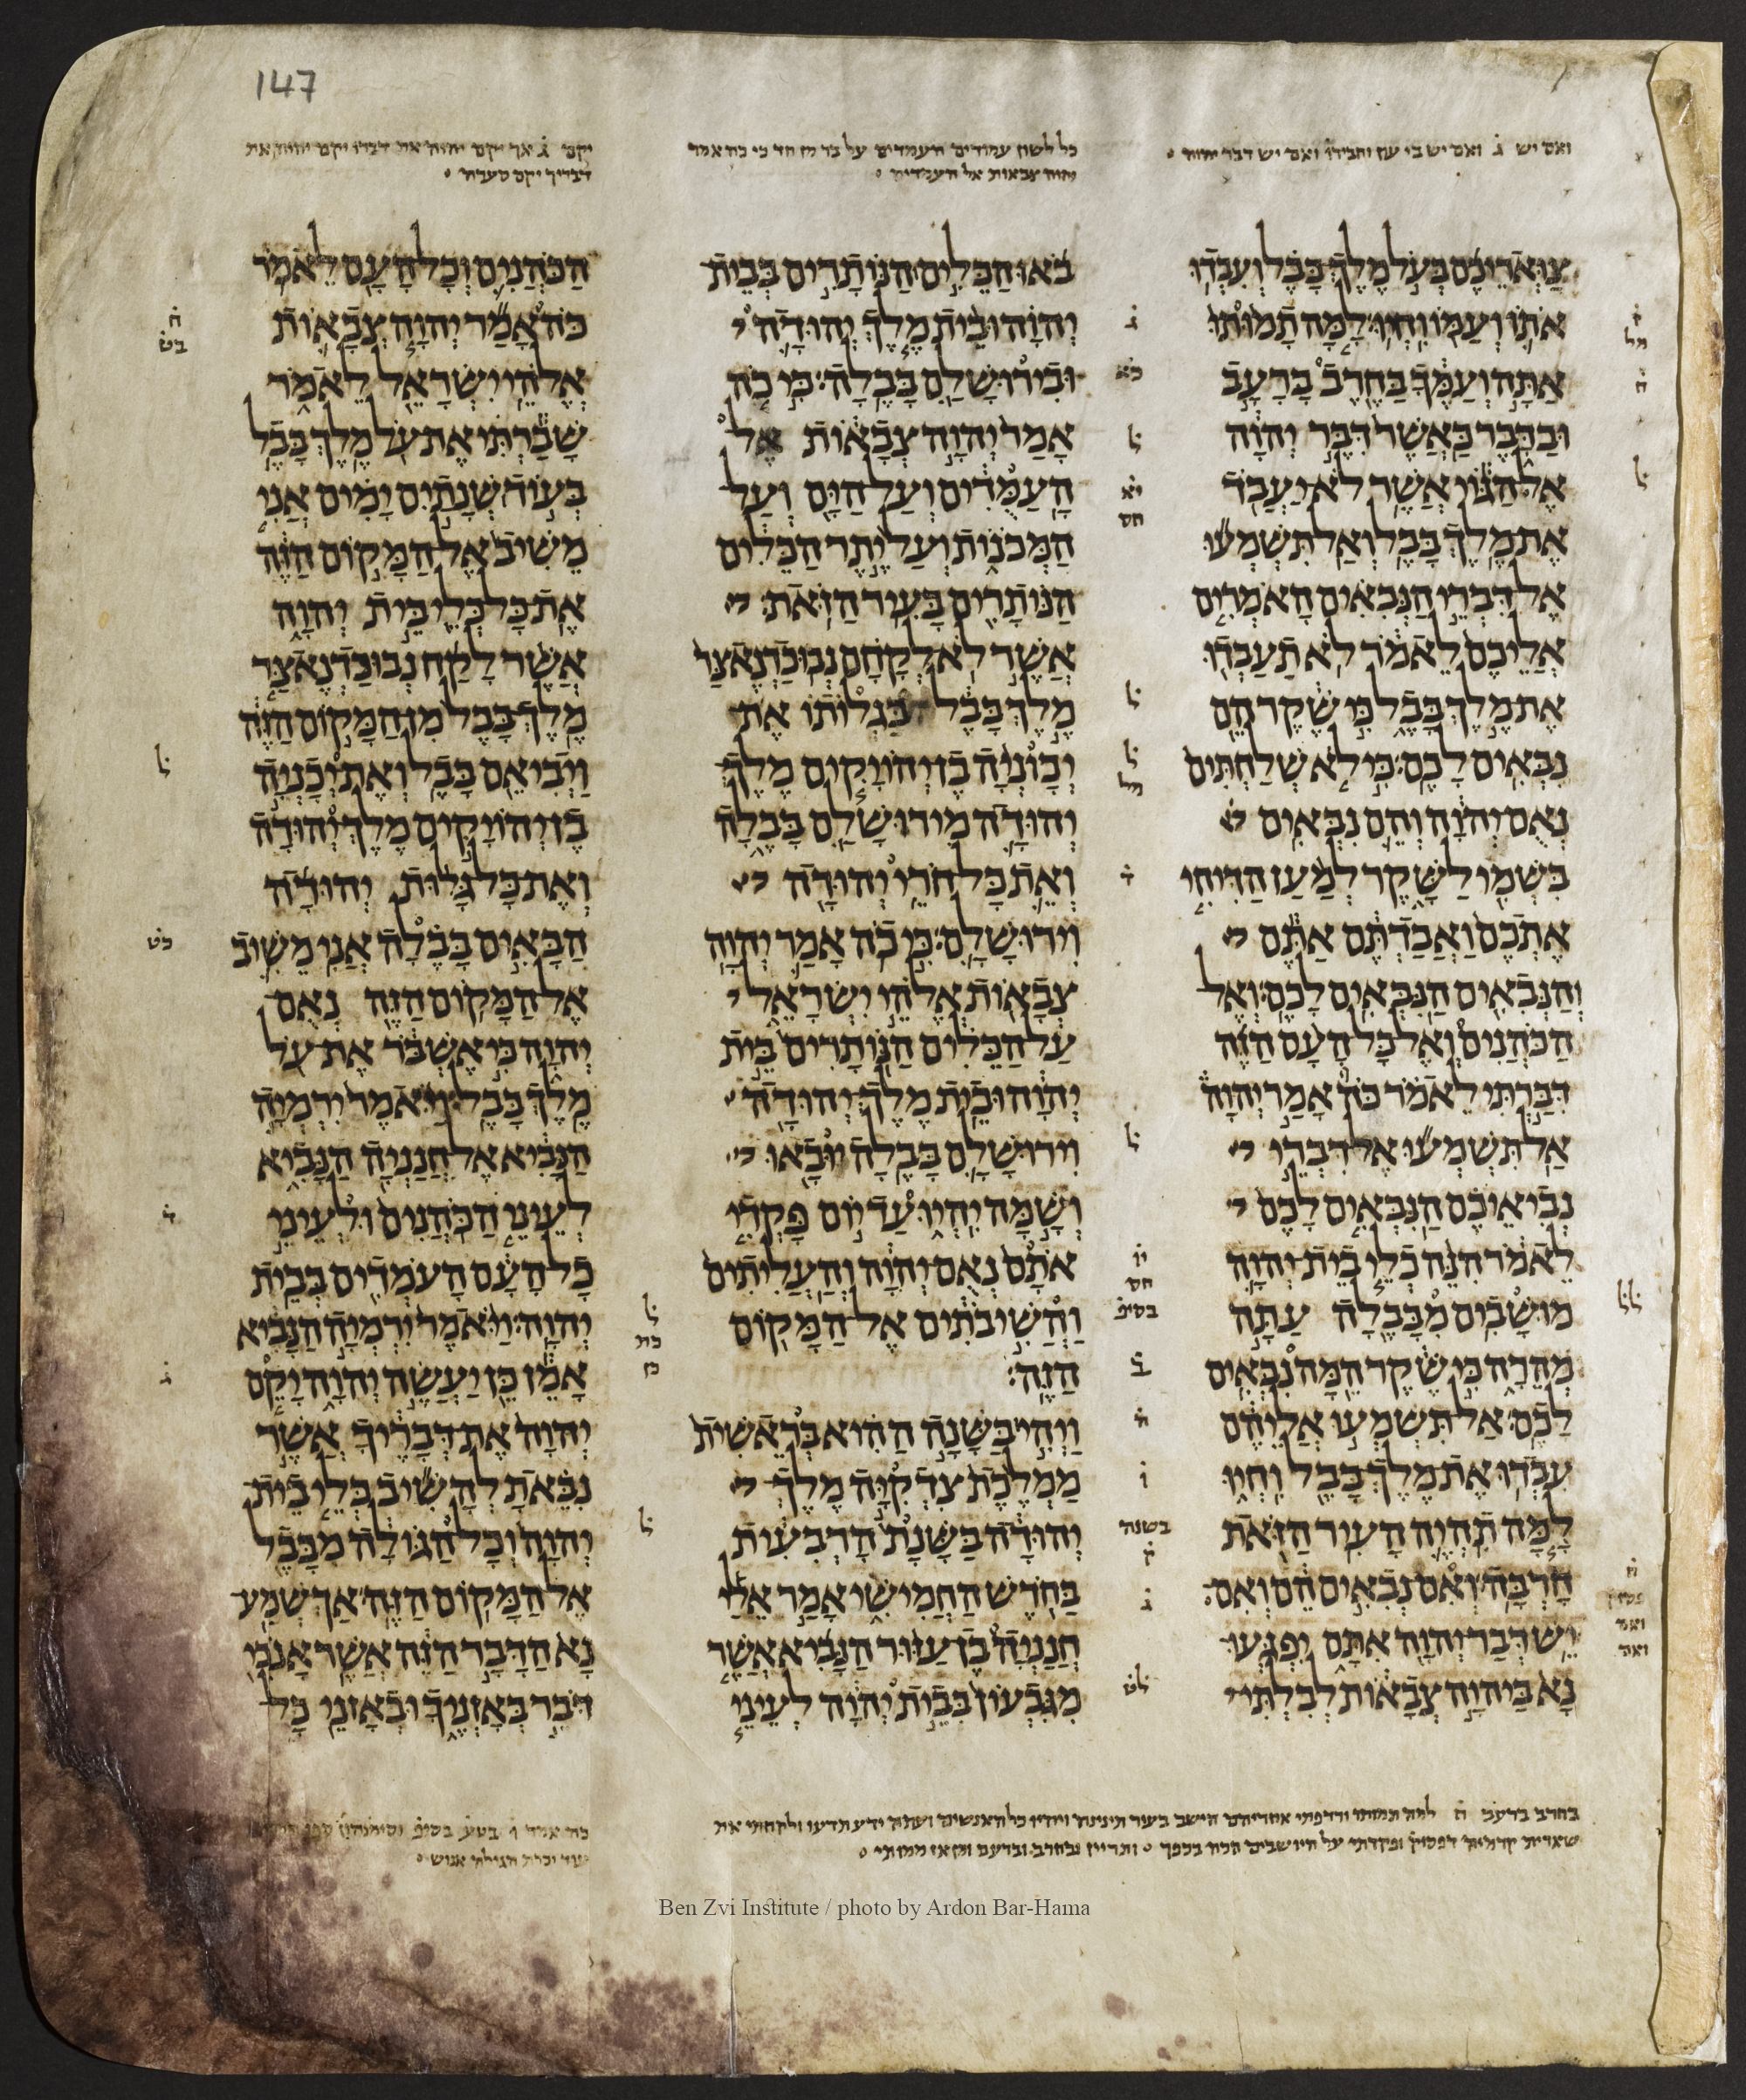 147
ואם יש ג ואם יש בי עון והבידו ואם יש דבר יהוה
כל לשון עמודים העמדים על בד מן חד כי כה אמר
יהוה צבאות אל העמדים
יקם ג אך יקם יהוה את דברו יקם יהוה את
דבריך יקם סערה
צואריכם בעל מלך בבל ועבדו
אתו ועמו וחיו׃ למה תמותו
אתה ועמך בחרב ברעב
ובדבר כאשר דבר יהוה
אל הגוי אשר לא יעבד
את מלך בבל׃ ואל תשמעו
אל דברי הנבאים האמרים
אליכם לאמר לא תעבדו
את מלך בבל כי שקר הם
נבאים לכם׃ כי לא שלחתים
נאם יהוה והם נבאים
בשמי לשקר למען הדיחי
אתכם ואבדתם אתם
והנבאים הנבאים לכם׃ ואל
הכהנים ואל כל העם הזה
דברתי לאמר כה אמר יהוה
אל תשמעו אל דברי
נביאיכם הנבאים לכם
לאמר הנה כלי בית יהוה
מושבים מבבלה עתה
מהרה כי שקר המה נבאים
לכם׃ אל תשמעו אליהם
עבדו את מלך בבל וחיו
למה תהיה העיר הזאת
חרבה׃ ואם נבאים הם ואם
יש דבר יהוה אתם יפגעו
נא ביהוה צבאות לבלתי
באו הכלים הנותרים בבית
יהוה ובית מלך יהודה
ובירושלם בבלה׃ כי כה
אמר יהוה צבאות אל
העמדים ועל הים ועל
המכנות ועל יתר הכלים
הנותרים בעיר הזאת׃
אשר לא לקחם נבוכדנאצר
מלך בבל בגלותו את
יכוניה בן יהויקים מלך
יהודה מירושלם בבלה
ואת כל חרי יהודה
וירושלם׃ כי כה אמר יהוה
צבאות אלהי ישראל
על הכלים הנותרים בית
יהוה ובית מלך יהודה
וירושלם׃ בבלה יובאו
ושמה יהיו עד יום פקדי
אתם נאם יהוה והעליתים
והשיבתים אל המקום
הזה׃
ויהי בשנה ההיא בראשית
ממלכת צדקיה מלך
יהודה בשנת הרבעית
בחדש החמישי אמר אלי
חנניה בן עזור הנביא אשר
מגבעון בבית יהוה לעיני
הכהנים וכל העם לאמר׃
כה אמר יהוה צבאות
אלהי ישראל לאמר
שברתי את על מלך בבל׃
בעוד שנתים ימים אני
משיב אל המקום הזה
את כל כלי בית יהוה
אשר לקח נבוכדנאצר
מלך בבל מן המקום הזה
ויביאם בבל׃ ואת יכניה
בן יהויקים מלך יהודה
ואת כל גלות יהודה
הבאים בבלה אני משיב
אל המקום הזה נאם
יהוה כי אשבר את על
מלך בבל׃ ויאמר ירמיה
הנביא אל חנניה הנביא
לעיני הכהנים ולעיני
כל העם העמדים בבית
יהוה׃ ויאמר ירמיה הנביא
אמן כן יעשה יהוה יקם
יהוה את דבריך אשר
נבאת להשיב כלי בית
יהוה וכל הגולה מבבל
אל המקום הזה׃ אך שמע
נא הדבר הזה אשר אנכי
דבר באזניך ובאזני כל
בחרב ברעב ה למה תמותו ורדפתי אחריהם הישב בעיר תיניניה ויהיו כל האנשים ועתה ידע תדעו ולקחתי את
שארית קדמיה דפסוק ופקדתי על היושבים
Ben Zvi Institute / photo by Ardon Bar-Hama